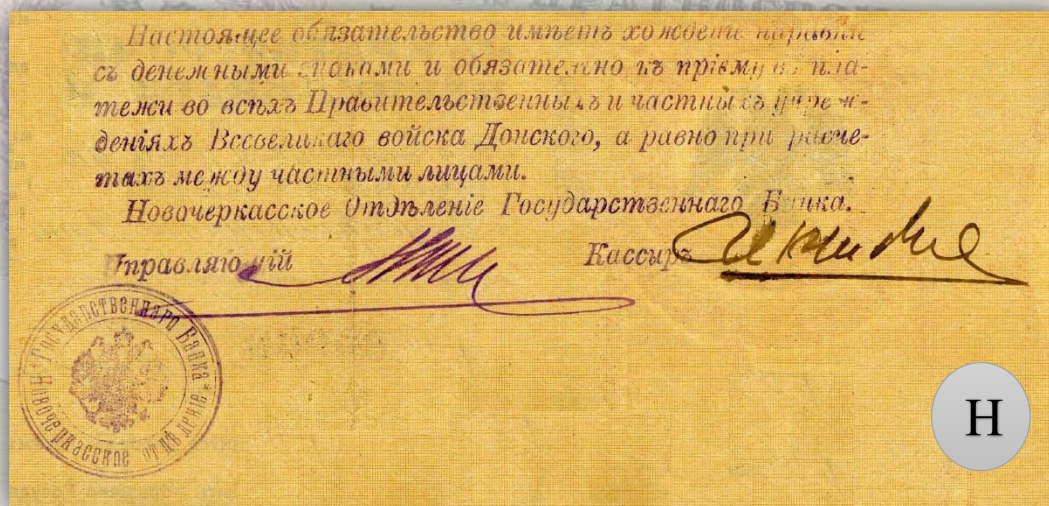 Настоящее обязательство имѣетъ хожденіе наравнѣ
съ денежными знаками и обязательно къ пріему въ пла-
тежи во всѣхъ Правительственныхъ и частныхъ учреж-
деніяхъ Всевеликаго войска Донского, а равно при расче-
тахъ между частными лицами.
Новочеркасское Отдѣленіе Государственнаго Банка.
Управляющій Кассиръ
Государственнаго Банка
Новочеркасское отдѣленіе
Н